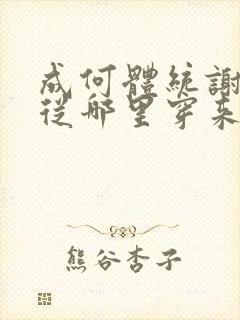 成何體統謝
從哪里穿來
熊谷杏子